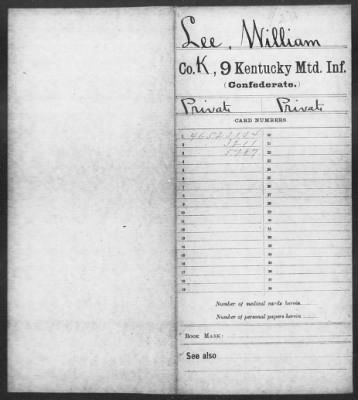 Lee, William
Co. K, 9 Kentucky Mtd. Inf.
(Confederate.)
Private Private
CARD NUMBERS.
1 20
2 21
3 22
4 23
5 24
6 25
7 26
8 27
9 28
10 29
11 30
12 31
13 32
14 33
15 34
16 35
17 36
18 37
19 38
Number of medical cards herein
Number of personal papers herein
BOOK MARK:
See also